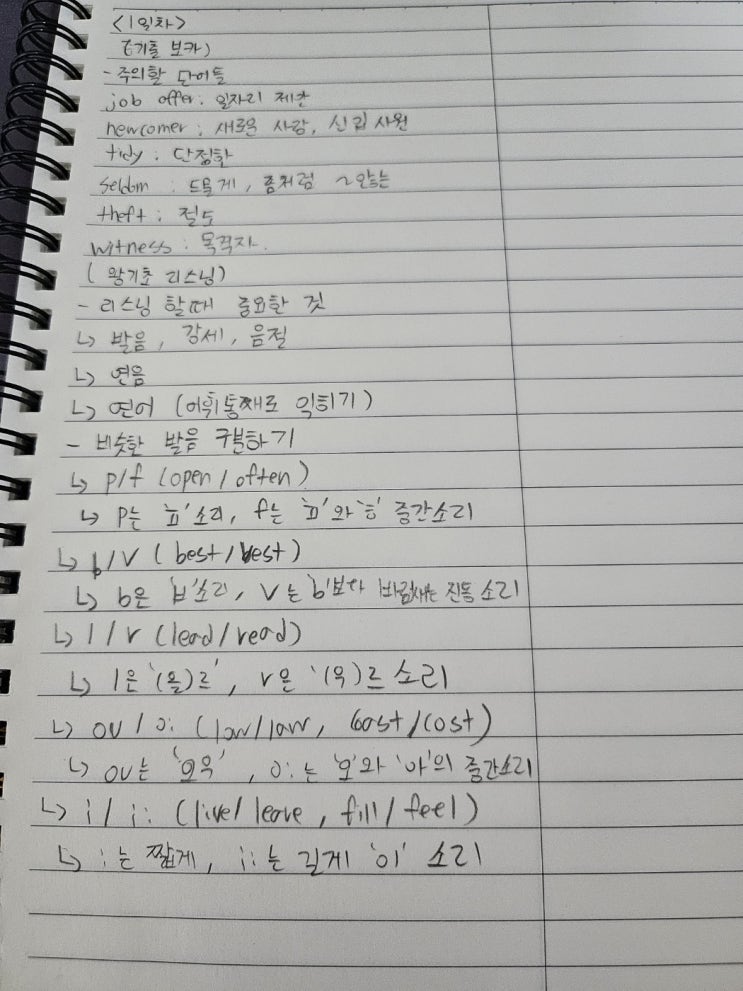 <1일차>
(기출 보카)
- 주의할 단어들
job offer : 일자리 제안
newcomer : 새로운 사람, 신입 사원
tidy : 단정한
seldom : 드물게, 좀처럼 ~않는
theft : 절도
witness : 목격자.
( 왕기초 리스닝)
- 리스닝 할때 중요한 것
↳ 발음, 강세, 음절
↳ 연음
↳ 연어 (어휘통째로 익히기)
- 비슷한 발음 구분하기
↳ p/f (open/often)
↳ p는 'ㅍ'소리, f는 'ㅍ'와 'ㅎ' 중간소리
↳ b/v (best/vest)
↳ b은 'ㅂ'소리, v는 b'보다 바람새는 진동 소리
↳ l/r (lead/read)
↳ l은 '(을)르', r은 '(우)르 소리
↳ ou / ɔ: (low/law, coast/cost)
↳ ou는 '오우', ɔ:는 '오'와 '아'의 중간소리
↳ i / i: (live/leave, fill/feel)
↳ i는 짧게, i:는 길게 '이' 소리